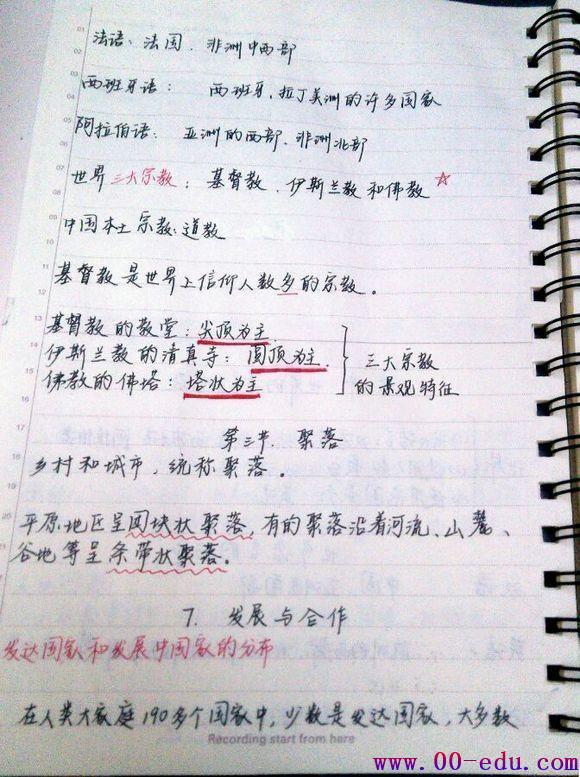 法语：法国、非洲中西部
西班牙语： 西班牙，拉丁美洲的许多国家
阿拉伯语： 亚洲的西部、非洲北部
世界三大宗教：基督教、伊斯兰教和佛教 ☆
中国本土宗教：道教
基督教是世界上信仰人数多的宗教。
基督教的教堂：尖顶为主
伊斯兰教的清真寺：圆顶为主.
佛教的佛塔：塔状为主
三大宗教
的景观特征
第三节. 聚落
乡村和城市，统称聚落.
平原地区呈团块状聚落，有的聚落沿着河流、山麓、
谷地等呈条带状聚落。
7. 发展与合作
发达国家和发展中国家的分布
在人类大家庭190多个国家中，少数是发达国家，大多数
Recording start from here
www.00-edu.com